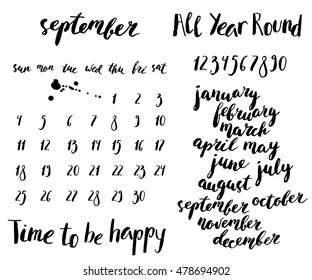 september
sun mon tue wed thu fri sat
1 2 3
4 5 6 7 8 9 10
11 12 13 14 15 16 17
18 19 20 21 22 23 24
25 26 27 28 29 30
Time to be happy
All Year Round
1234567890
january
february
march
april may
june july
august
september october
november
december
shutterstock.com · 478694902